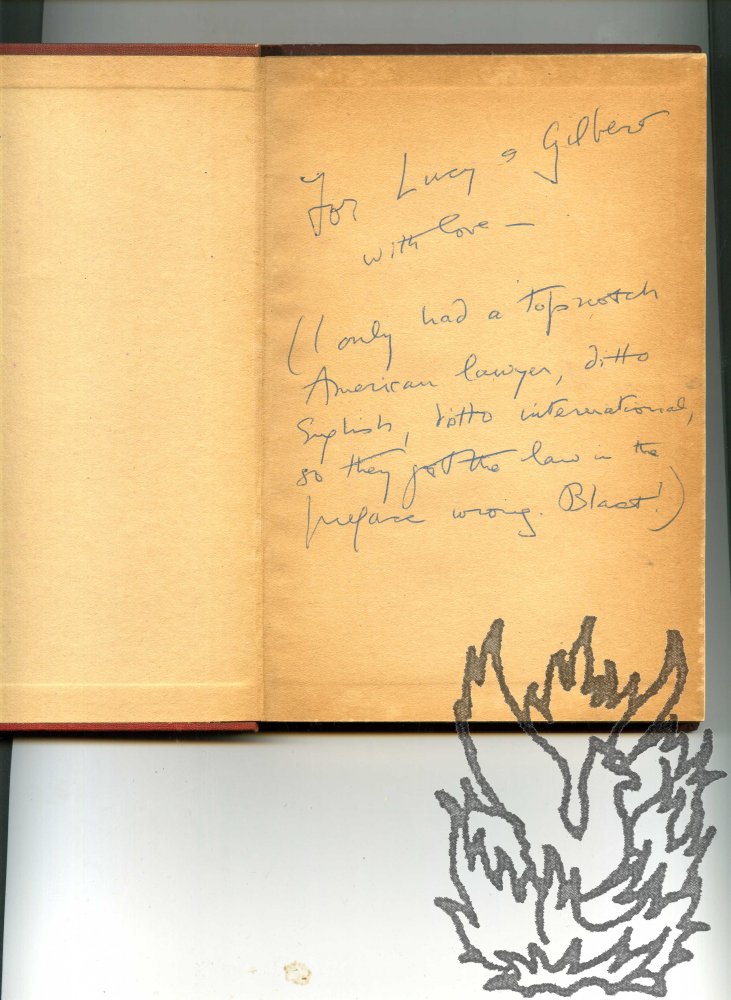 For Lucy & Gilbert
with love —
(I only had a topnotch
American lawyer, ditto
English, ditto international,
so they got the law in the
preface wrong. Blast!)